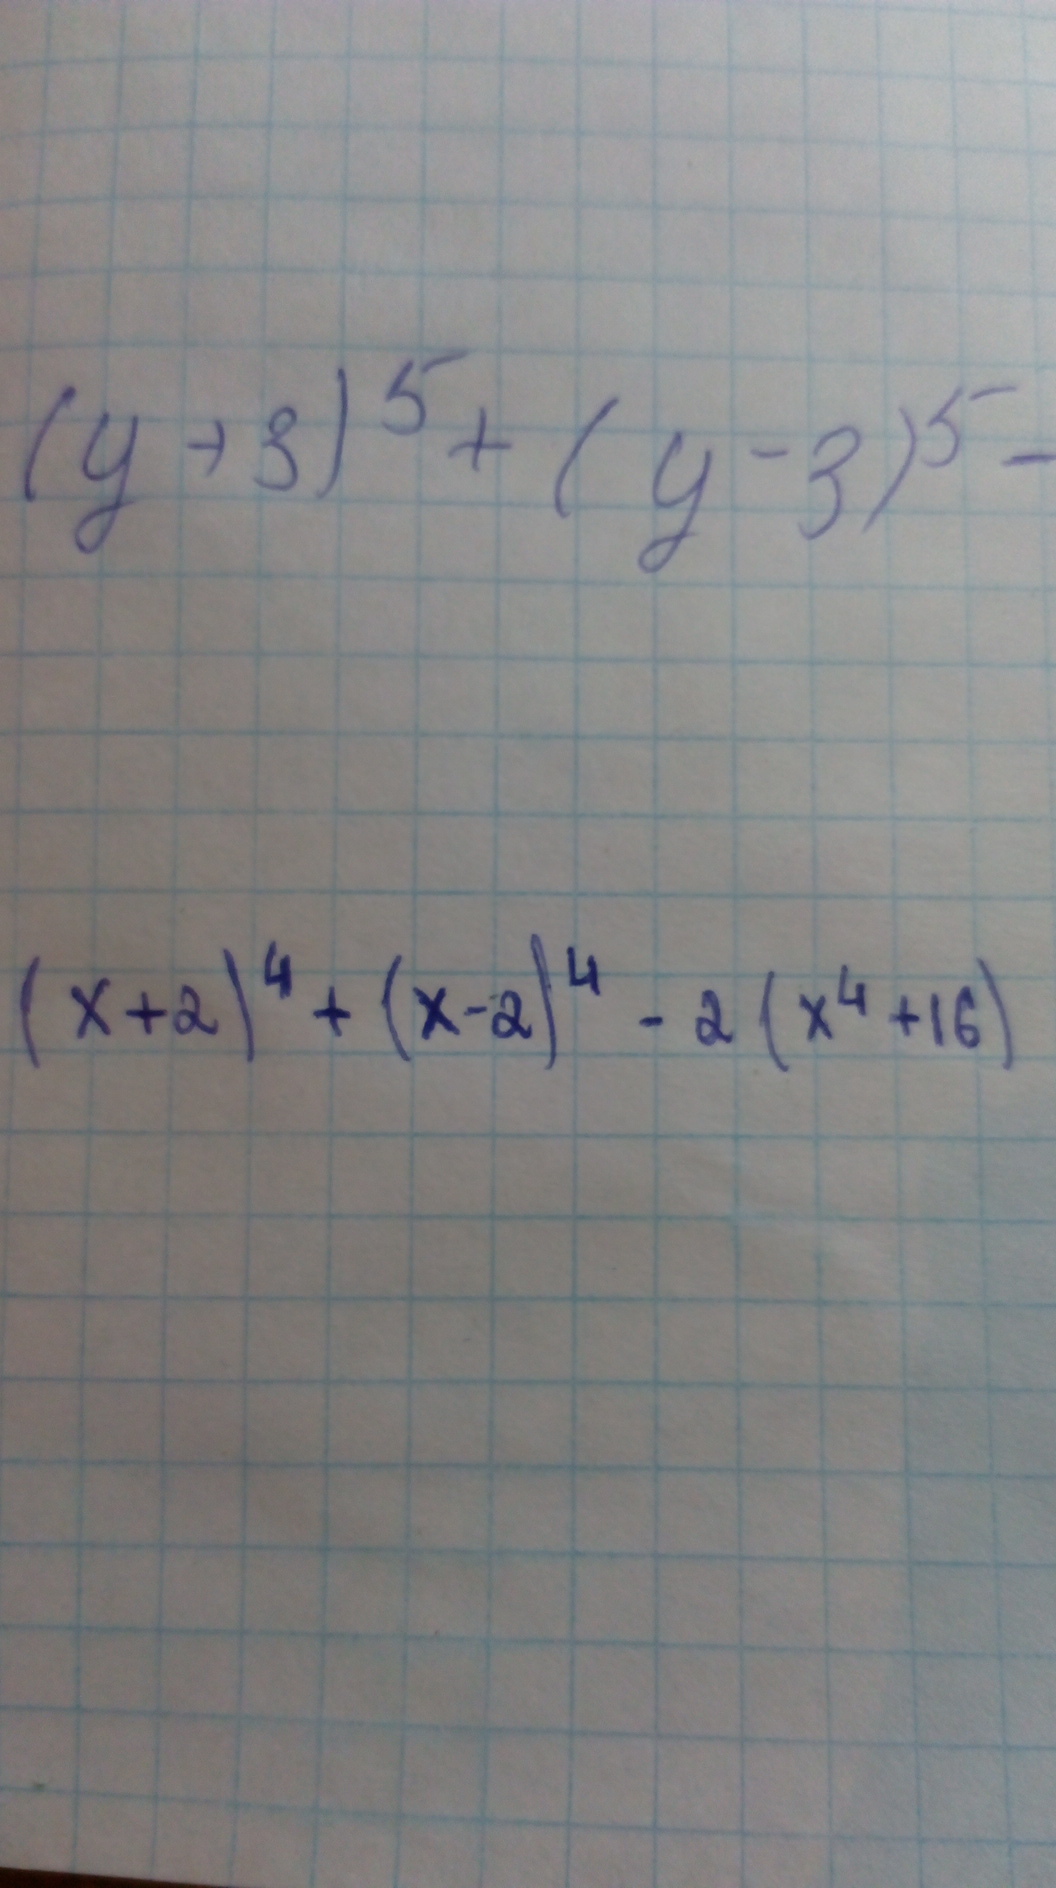 (y+3)⁵+(y-3)⁵-
(x+2)⁴+(x-2)⁴-2(x⁴+16)